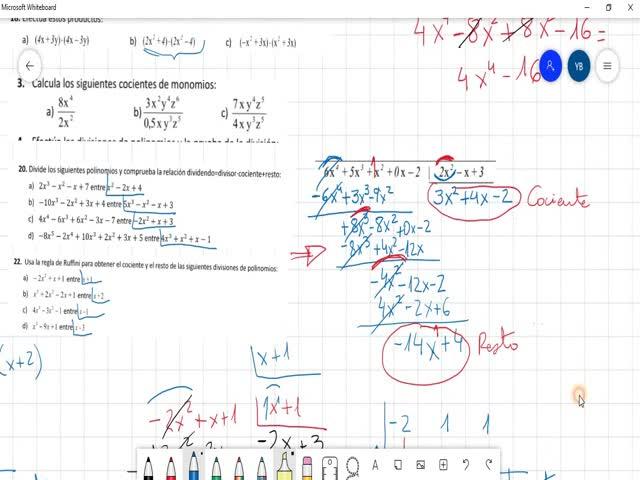 Microsoft Whiteboard
a) (4x+3y)·(4x−3y) b) (2x²+4)·(2x²−4) c) (−x²+3x)·(x²+3x)
4x⁴ − 8x² + 8x² − 16 =
4x⁴ − 16
YB
3. Calcula los siguientes cocientes de monomios:
a) 8x⁴/2x² b) 3x²y⁴z⁶/0,5xy³z⁵ c) 7xy⁴z⁵/4xy³z⁵
20. Divide los siguientes polinomios y comprueba la relación dividendo=divisor·cociente+resto:
a) 2x³ − x² − x + 7 entre x² − 2x + 4
b) −10x³ − 2x² + 3x + 4 entre 5x³ − x² − x + 3
c) 4x⁴ − 6x³ + 6x² − 3x − 7 entre −2x² + x + 3
d) −8x⁵ − 2x⁴ + 10x³ + 2x² + 3x + 5 entre 4x³ + x² + x − 1
22. Usa la regla de Ruffini para obtener el cociente y el resto de las siguientes divisiones de polinomios:
a) −2x² + x + 1 entre x+1
b) x³ + 2x² − 2x + 1 entre x+2
c) 4x³ − 3x² − 1 entre x−1
d) x³ − 9x + 1 entre x−3
6x⁴ + 5x³ + x² + 0x − 2 | 2x² − x + 3
−6x⁴ + 3x³ − 9x² 3x² + 4x − 2 Cociente
+8x³ − 8x² + 0x − 2
−8x³ + 4x² − 12x
−4x² − 12x − 2
4x² − 2x + 6
−14x + 4 Resto
(x+2)
x + 1
−2x² + x + 1 1x + 1
−2 1 1
−2x + 3